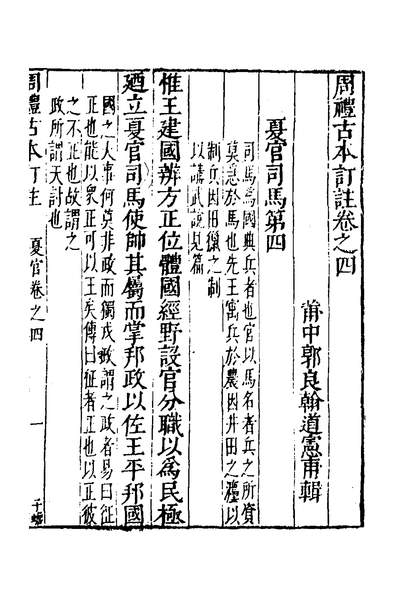 周禮古本訂註卷之四
莆中郭良翰道憲甫輯
夏官司馬第四
司馬為國典兵者也官以馬名者兵之所資
莫急於馬也先王寓兵於農因井田之灋以
制兵因田獵之制
以講武說見篇
惟王建國辨方正位體國經野設官分職以為民極
廼立夏官司馬使帥其屬而掌邦政以佐王平邦國
國之大事何莫非政而獨戎政謂之政者易曰征
正也能以衆正可以王矣傳曰征者正也以正彼
之不正也故謂之
政所謂天討也
周禮古本訂註
夏官卷之四
一